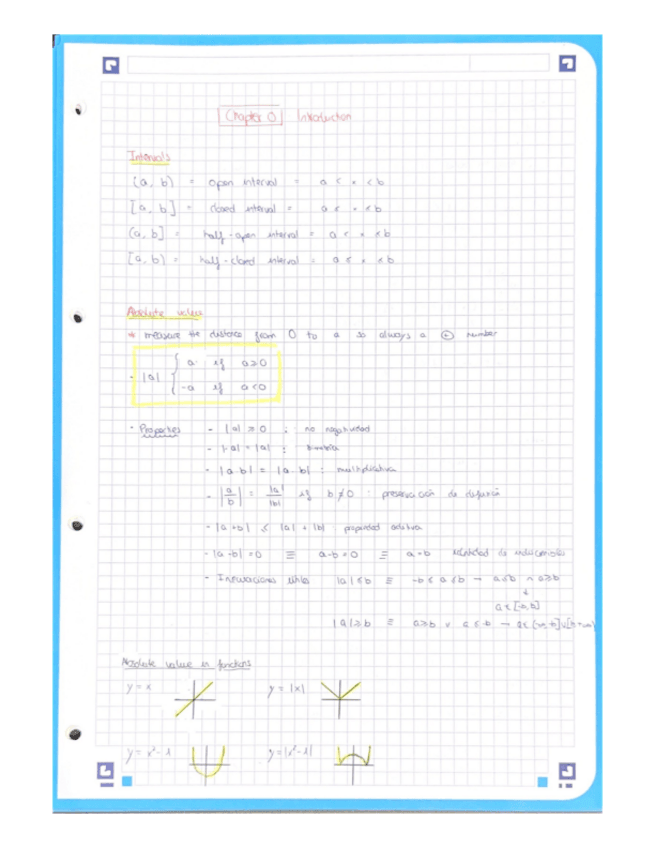 Chapter 0 Introduction
Intervals
(a, b) = open interval = a < x < b
[a, b] = closed interval = a ≤ x ≤ b
(a, b] = half-open interval = a < x ≤ b
[a, b) = half-closed interval = a ≤ x < b
Absolute value
* measure the distance from 0 to a so always a ⊕ number
- |a| { a if a ≥ 0
-a if a < 0
- Properties - |a| ≥ 0 : no negatividad
- |-a| = |a| : simetría
- |a b| = |a · b| : multiplicativa
- |a/b| = |a|/|b| if b ≠ 0 : preservación de división
- |a + b| ≤ |a| + |b| : propiedad aditiva
- |a - b| = 0 ≡ a - b = 0 ≡ a = b identidad de indiscernibles
- Inecuaciones útiles |a| ≤ b ≡ -b ≤ a ≤ b → a ≤ b ∧ a ≥ b
a ∈ [-b, b]
|a| ≥ b ≡ a ≥ b ∨ a ≤ -b → a ∈ [-∞, -b] ∪ [b, +∞)
Absolute value in functions
y = x y = |x|
y = x² - 1 y = |x² - 1|